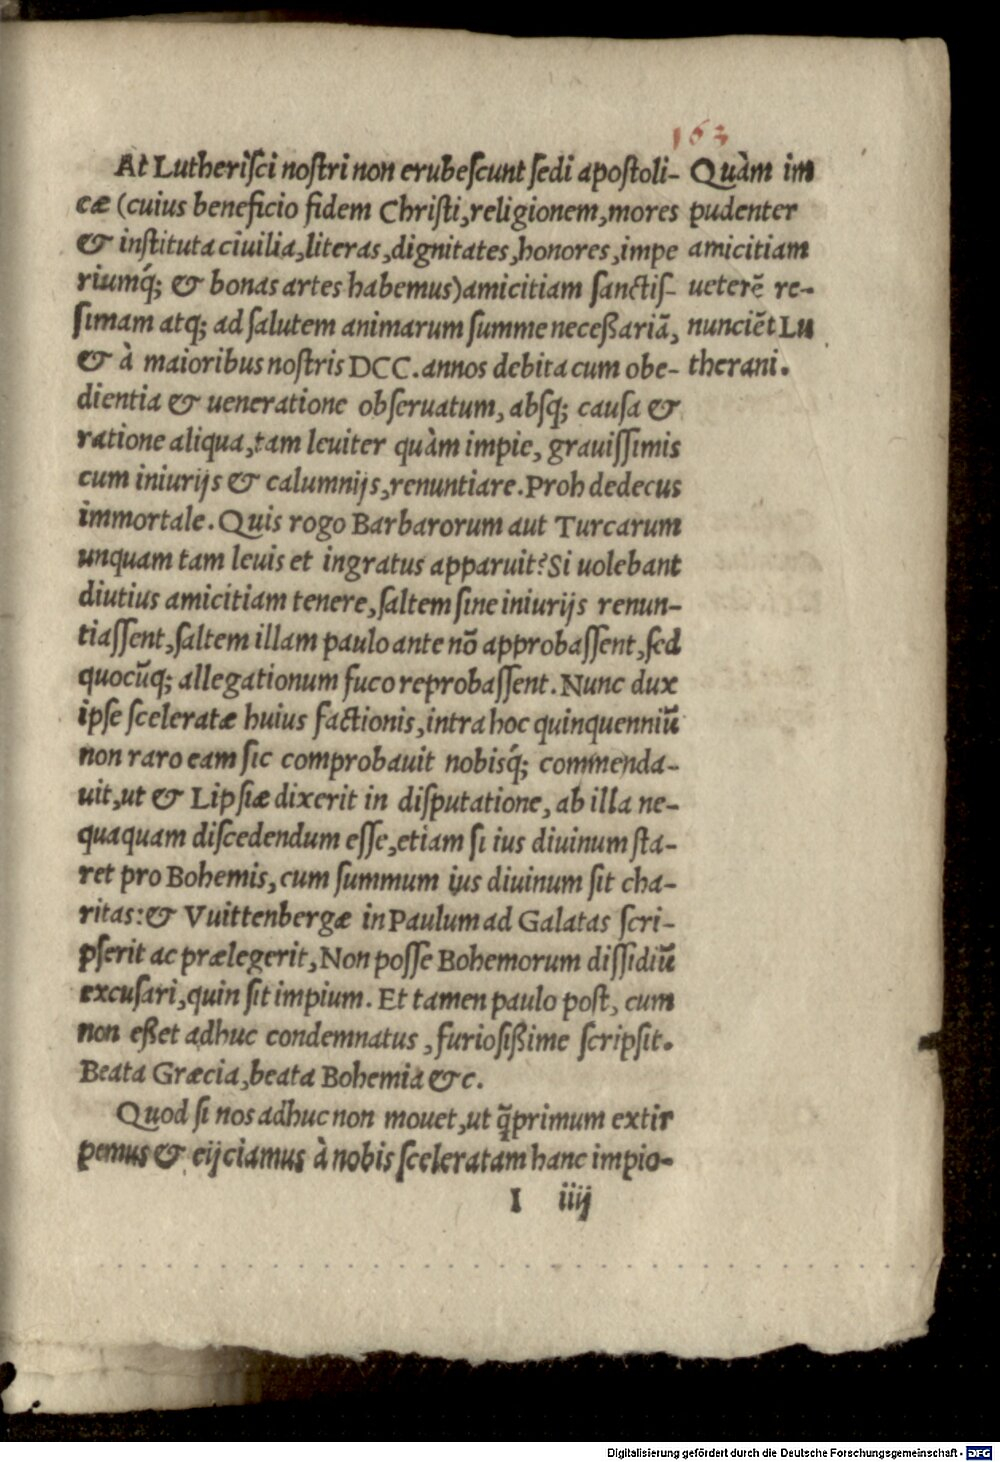 163
At Lutheriſci noſtri non erubeſcunt ſedi apoſtoli-
cæ (cuius beneficio fidem Chriſti, religionem, mores
& inſtituta ciuilia, literas, dignitates, honores, impe
riumq́; & bonas artes habemus) amicitiam ſanctiſ-
ſimam atq; ad ſalutem animarum ſumme neceßariā,
& à maioribus noſtris DCC. annos debita cum obe-
dientia & ueneratione obſeruatum, absq; cauſa &
ratione aliqua, tam leuiter quàm impie, grauiſſimis
cum iniurijs & calumnijs, renuntiare. Proh dedecus
immortale. Quis rogo Barbarorum aut Turcarum
unquam tam leuis et ingratus apparuit? Si uolebant
diutius amicitiam tenere, ſaltem ſine iniurijs renun-
tiaſſent, ſaltem illam paulo ante nō approbaſſent, ſed
quocūq; allegationum fuco reprobaſſent. Nunc dux
ipſe ſceleratæ huius factionis, intra hoc quinquenniū
non raro eam ſic comprobauit nobisq́; commenda-
uit, ut & Lipſiæ dixerit in diſputatione, ab illa ne-
quaquam diſcedendum eſſe, etiam ſi ius diuinum ſta-
ret pro Bohemis, cum ſummum ius diuinum ſit cha-
ritas: & Vuittenbergæ in Paulum ad Galatas ſcri-
pſerit ac prælegerit, Non poſſe Bohemorum diſſidiū
excuſari, quin ſit impium. Et tamen paulo poſt, cum
non eßet adhuc condemnatus, furioſißime ſcripſit.
Beata Græcia, beata Bohemia &c.
Quod ſi nos adhuc non mouet, ut q̃primum extir
pemus & eijciamus à nobis ſceleratam hanc impio-
I iiij
Quàm im
pudenter
amicitiam
ueterē re-
nunciēt Lu
therani.
Digitalisierung gefördert durch die Deutsche Forschungsgemeinschaft - DFG